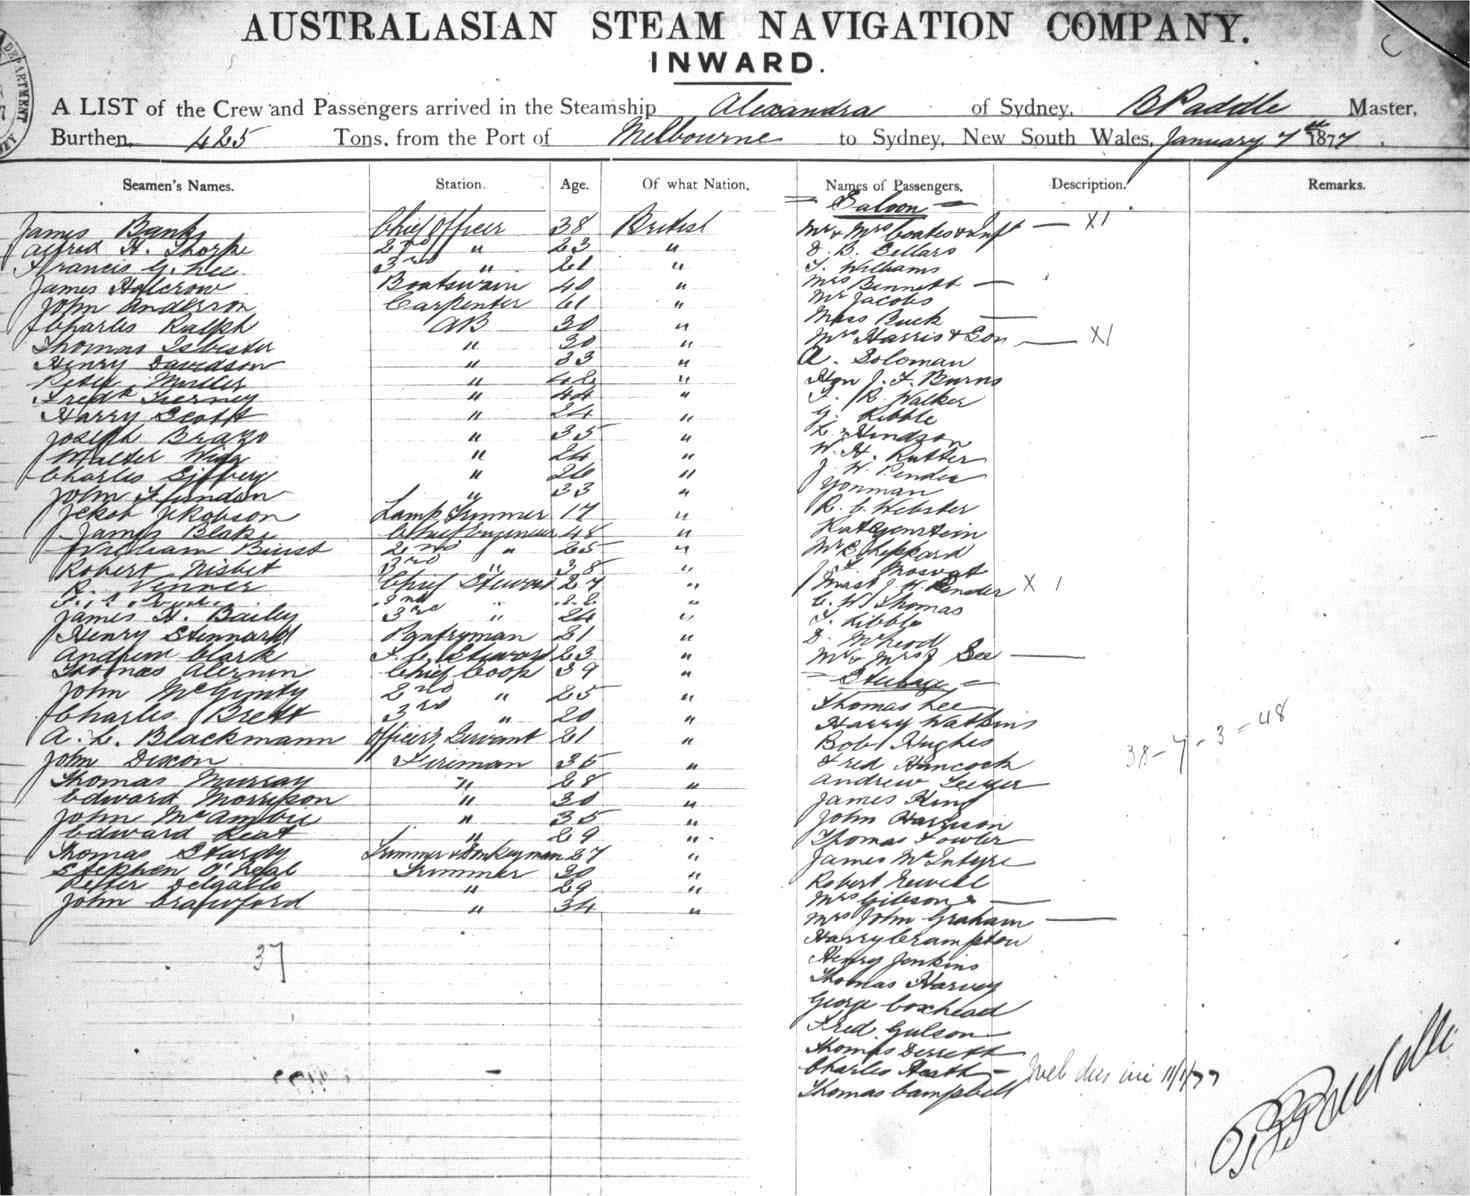 AUSTRALASIAN STEAM NAVIGATION COMPANY.
INWARD.
A LIST of the Crew and Passengers arrived in the Steamship Alexandra of Sydney, B Paddle Master,
Burthen, 425 Tons, from the Port of Melbourne to Sydney, New South Wales, January 7th 1877.
Seamen's Names. Station. Age. Of what Nation. Names of Passengers. Description. Remarks.
James Banks Chief Officer 38 British
Alfred H. Thorpe 2nd " 23 "
Francis G. Lee 3rd " 21 "
James Halcrow Boatswain 40 "
John Anderson Carpenter 61 "
Charles Ralph AB 30 "
Thomas Isbester " 30 "
Henry Davidson " 33 "
Peter " 42 "
Fredk Tierney " 44 "
Harry Scott " 24 "
Joseph Brazo " 35 "
Walter " 24 "
Charles " 26 "
John " 33 "
Jekob Jekobson Lamp Trimmer 17 "
James Blake Chief Engineer 48 "
William 2nd " 25 "
Robert Nisbet 3rd " 38 "
R. Venner Chief Steward 27 "
2nd " 22 "
James H. Bailey 3rd " 24 "
Henry Stennard Pantryman 21 "
Andrew Clark F. C. Steward 23 "
Thomas Chief Cook 39 "
John McGinty 2nd " 25 "
Charles Brett 3rd " 20 "
A. L. Blackmann Officers Servant 21 "
John Dixon Fireman 35 "
Thomas Murray " 28 "
Edward Morrison " 30 "
John McAmbie " 35 "
Edward Keat " 29 "
Thomas Stardy Trimmer & Donkeyman 27 "
Stephen O'Neal Trimmer 30 "
Peter Delgallo " 29 "
John Crawford " 34 "
37
= Saloon =
Mr & Mrs Coates & Inft — X1
D. B. Sellars
T. Williams
Mrs Bennett —
Mr Jacobs
Miss Buck —
Mrs Harris & Son — X1
A. Soloman
Hon J. F. Burns
T. B. Walker
G. Kibble
L. Hindson
W. H. Rutter
J. W. Pender
Yonman
R. C. Webster
Katzenstein
Mr C Sheppard
J. L.
Mast J. H. Pender X 1
C. W. Thomas
T. Kibble
D. McLeod
Mr & Mrs J See —
= Steerage =
Thomas Lee
Harry Watkins
Bob Hughes
Fred Hancock
Andrew
James King
John Harrison
Thomas Fowler
James McIntyre
Robert Newell
Mrs Gibson —
Mrs John Graham —
Harry Crampton
Henry Jenkins
Thomas Harvey
George Coxhead
Fred. Gulson
Thomas Derrett
Charles Heath
Thomas Campbell
38 - 7 - 3 = 48
11/1/77
B Paddle